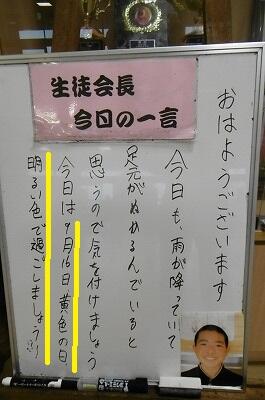 生徒会長
今日の一言
おはようございます
今日も、雨が降っていて
足元がぬめるんでいると
思うので気を付けましょう
今日は9月16日黄色の日
明るい色で過ごしましょう!!